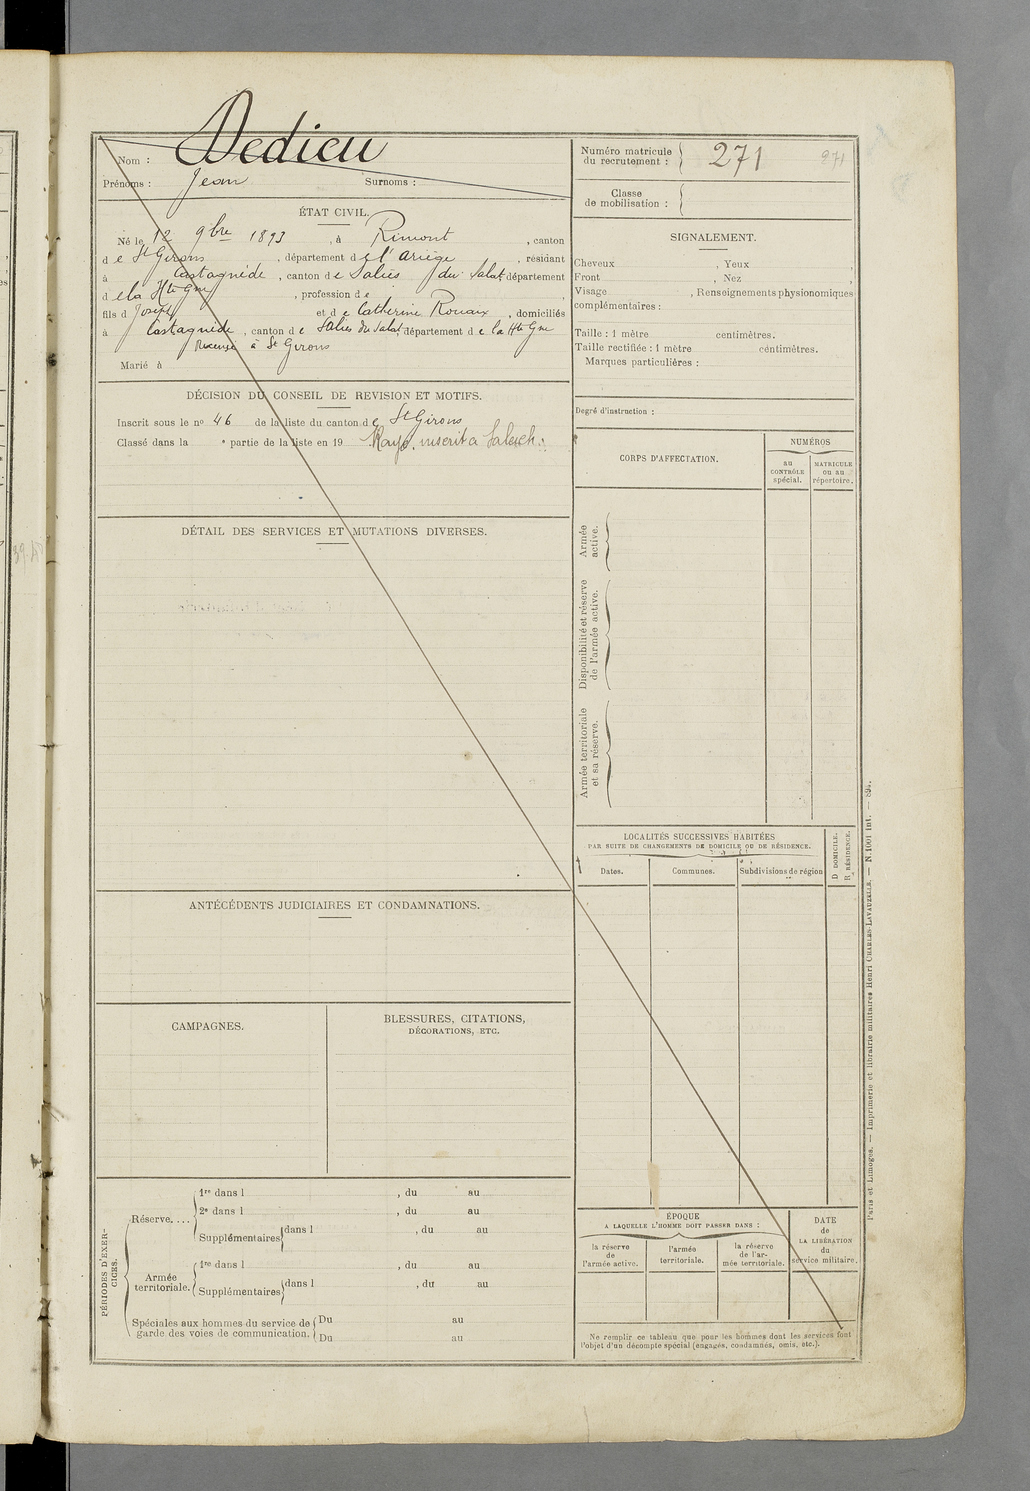 Nom : Dedieu
Prénoms : Jean Surnoms :
ÉTAT CIVIL.
Né le 12 9bre 1893, à Rimont, canton
de St Girons, département de l'Ariège, résidant
à Castagnède, canton de Salies du Salat, département
de la Hte Gne, profession de
fils d Joseph et de Catherine Rouaix, domiciliés
à Castagnède, canton de Salies du Salat, département de la Hte Gne
Recensé à St Girons
Marié à
DÉCISION DU CONSEIL DE REVISION ET MOTIFS.
Inscrit sous le no 46 de la liste du canton de St Girons
Classé dans la e partie de la liste en 19 Rayé, inscrit à
DÉTAIL DES SERVICES ET MUTATIONS DIVERSES.
ANTÉCÉDENTS JUDICIAIRES ET CONDAMNATIONS.
CAMPAGNES.
BLESSURES, CITATIONS,
DÉCORATIONS, ETC.
PÉRIODES D'EXER-
CICES.
Réserve....
1re dans l , du au
2e dans l , du au
Supplémentaires dans l , du au
Armée
territoriale.
1re dans l , du au
Supplémentaires dans l , du au
Spéciales aux hommes du service de
garde des voies de communication.
Du au
Du au
Numéro matricule
du recrutement : 271 271
Classe
de mobilisation :
SIGNALEMENT.
Cheveux , Yeux ,
Front , Nez ,
Visage , Renseignements physionomiques
complémentaires :
Taille : 1 mètre centimètres.
Taille rectifiée : 1 mètre centimètres.
Marques particulières :
Degré d'instruction :
CORPS D'AFFECTATION.
NUMÉROS
au
CONTRÔLE
spécial.
MATRICULE
ou au
répertoire.
Armée
active.
Disponibilité et réserve
de l'armée active.
Armée territoriale
et sa réserve.
LOCALITÉS SUCCESSIVES HABITÉES
PAR SUITE DE CHANGEMENTS DE DOMICILE OU DE RÉSIDENCE.
Dates.
Communes.
Subdivisions de région
D DOMICILE.
R RÉSIDENCE.
ÉPOQUE
A LAQUELLE L'HOMME DOIT PASSER DANS :
la réserve
de
l'armée active.
l'armée
territoriale.
la réserve
de l'ar-
mée territoriale.
DATE
de
LA LIBÉRATION
du
service militaire.
Ne remplir ce tableau que pour les hommes dont les services font
l'objet d'un décompte spécial (engagés, condamnés, omis, etc.).
Paris et Limoges. — Imprimerie et librairie militaires Henri CHARLES-LAVAUZELLE. — N. 1001 int. —